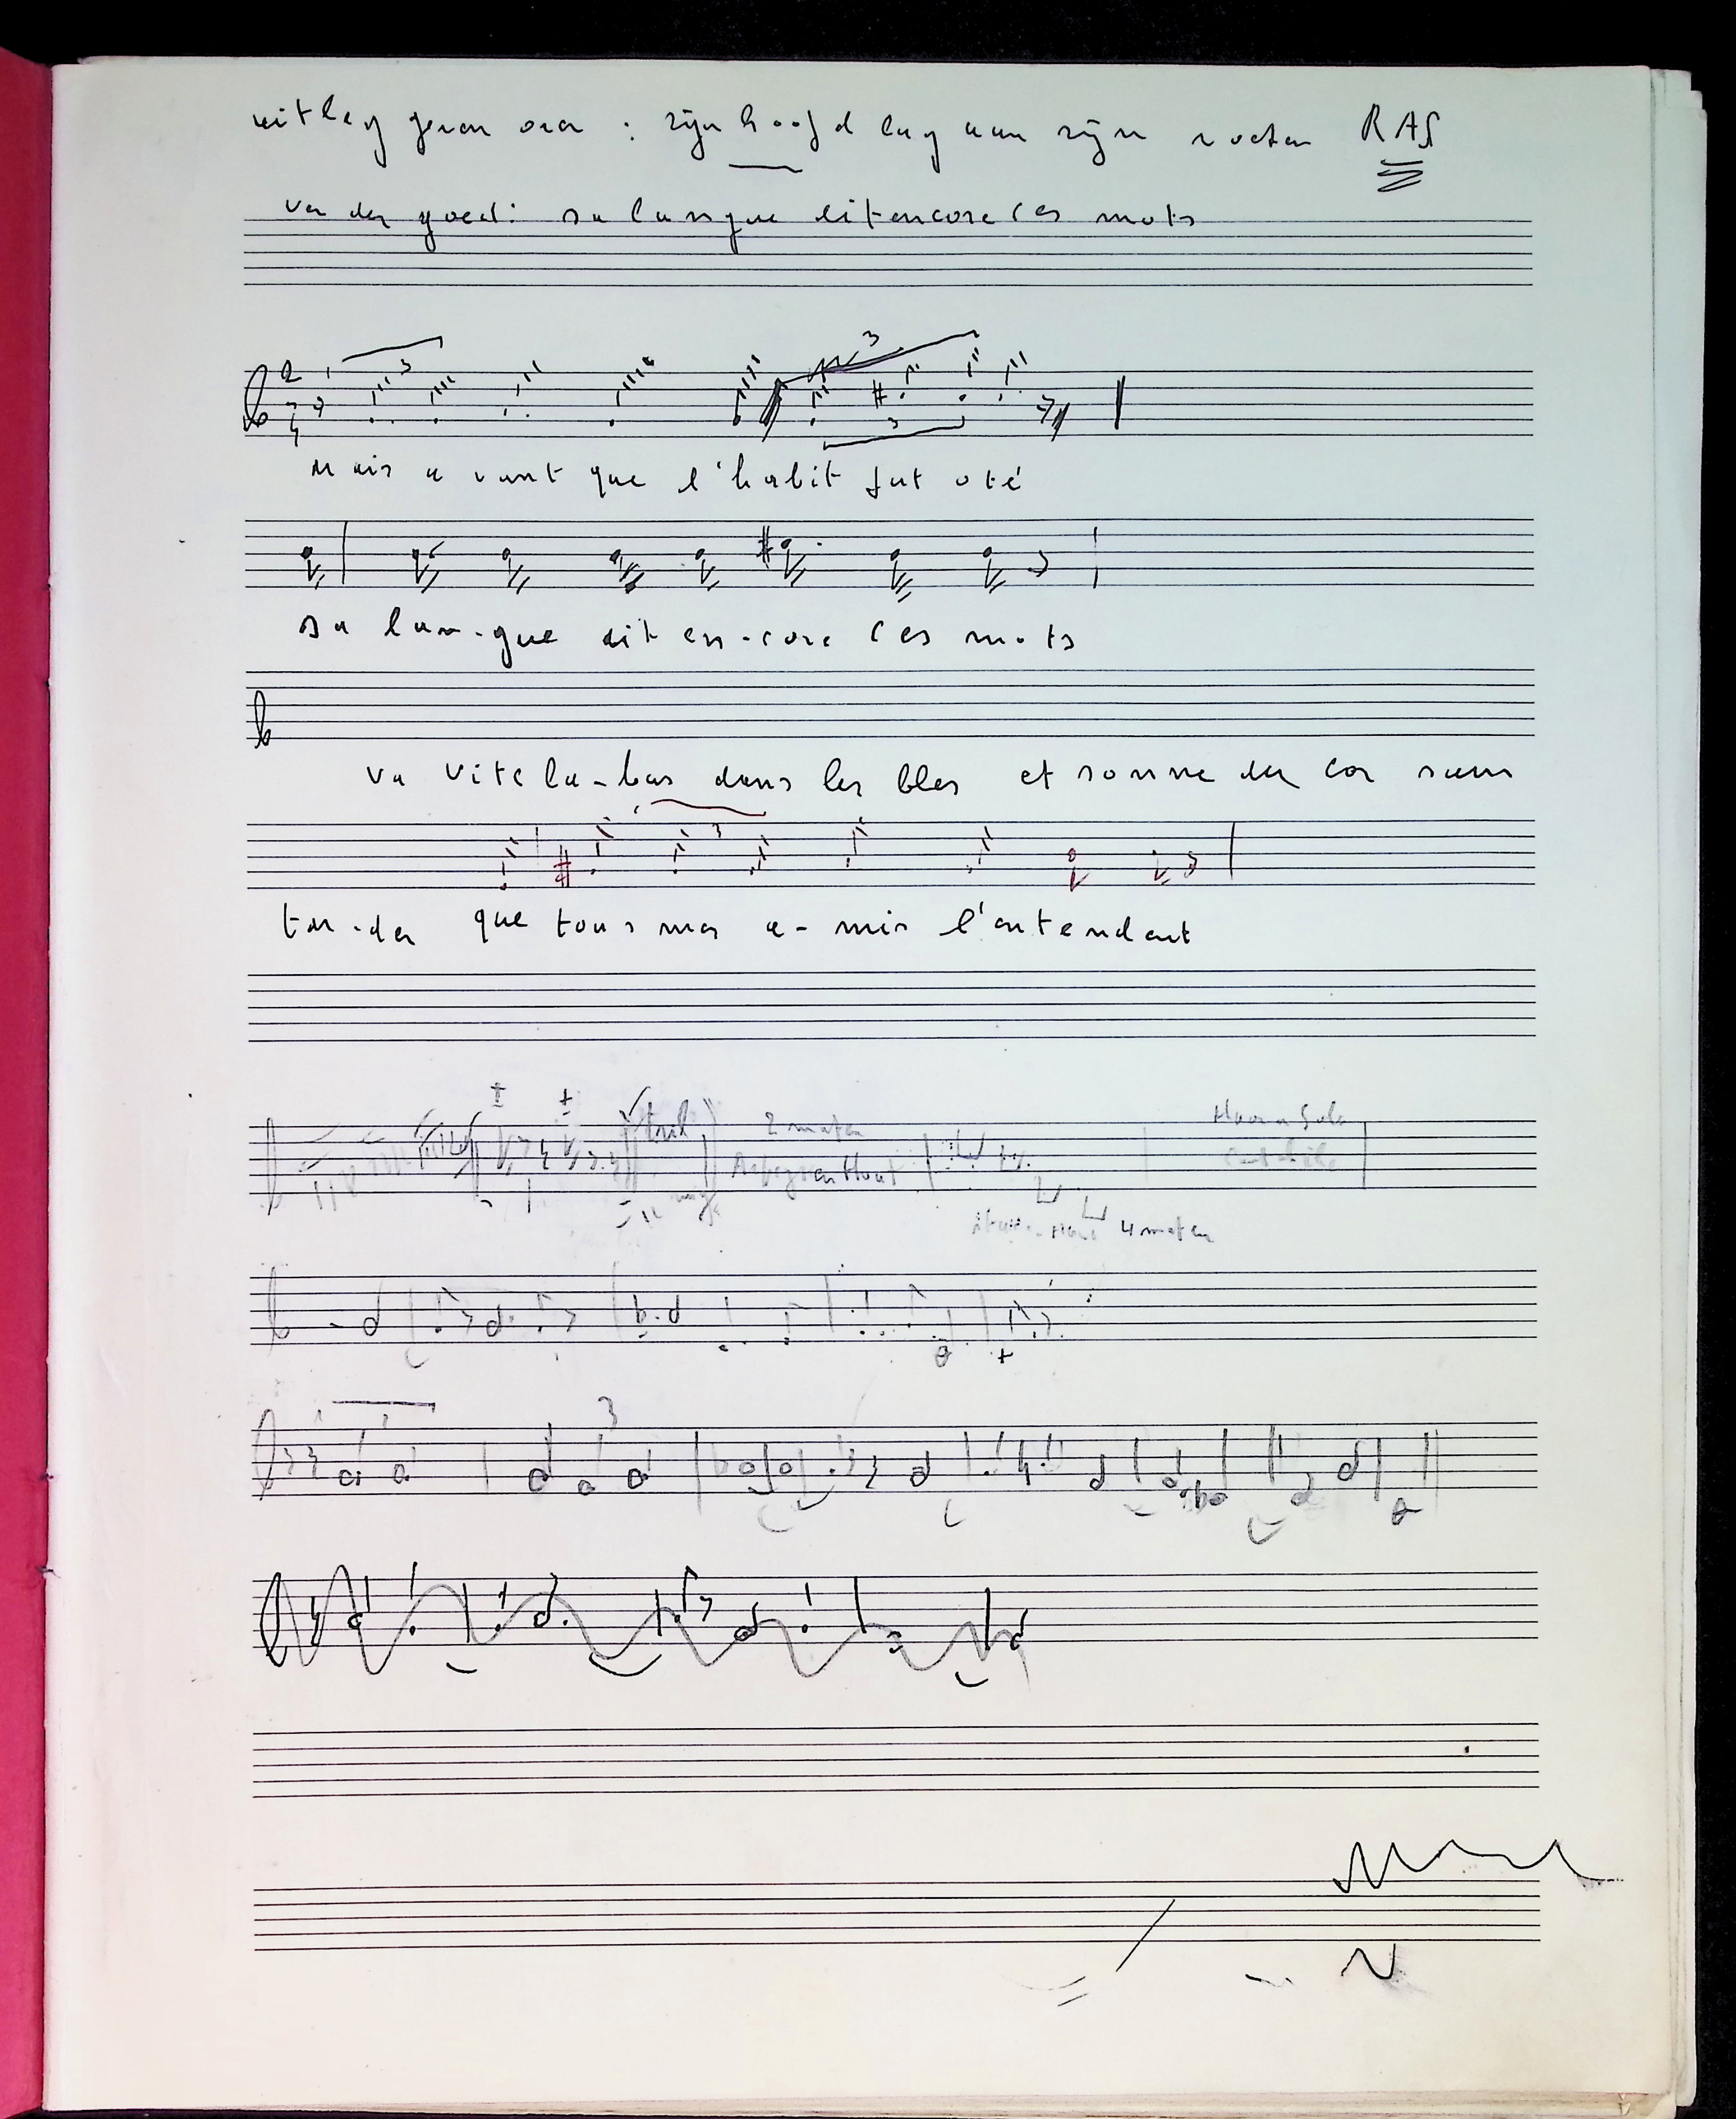 uitleg geven over : zijn hoofd lag aan zijn voeten RAS
verder goed: sa langue dit encore ces mots
2
3 3
3
mais avant que l'habit fut oté
sa lan-gue dit en-core ces mots
va vite la-bas dans les bles et sonne du cor sans
tar-der que tous mes a-mis l'entendent
3
2 maten
Hoorn Solo
en Hout
4 maten
3